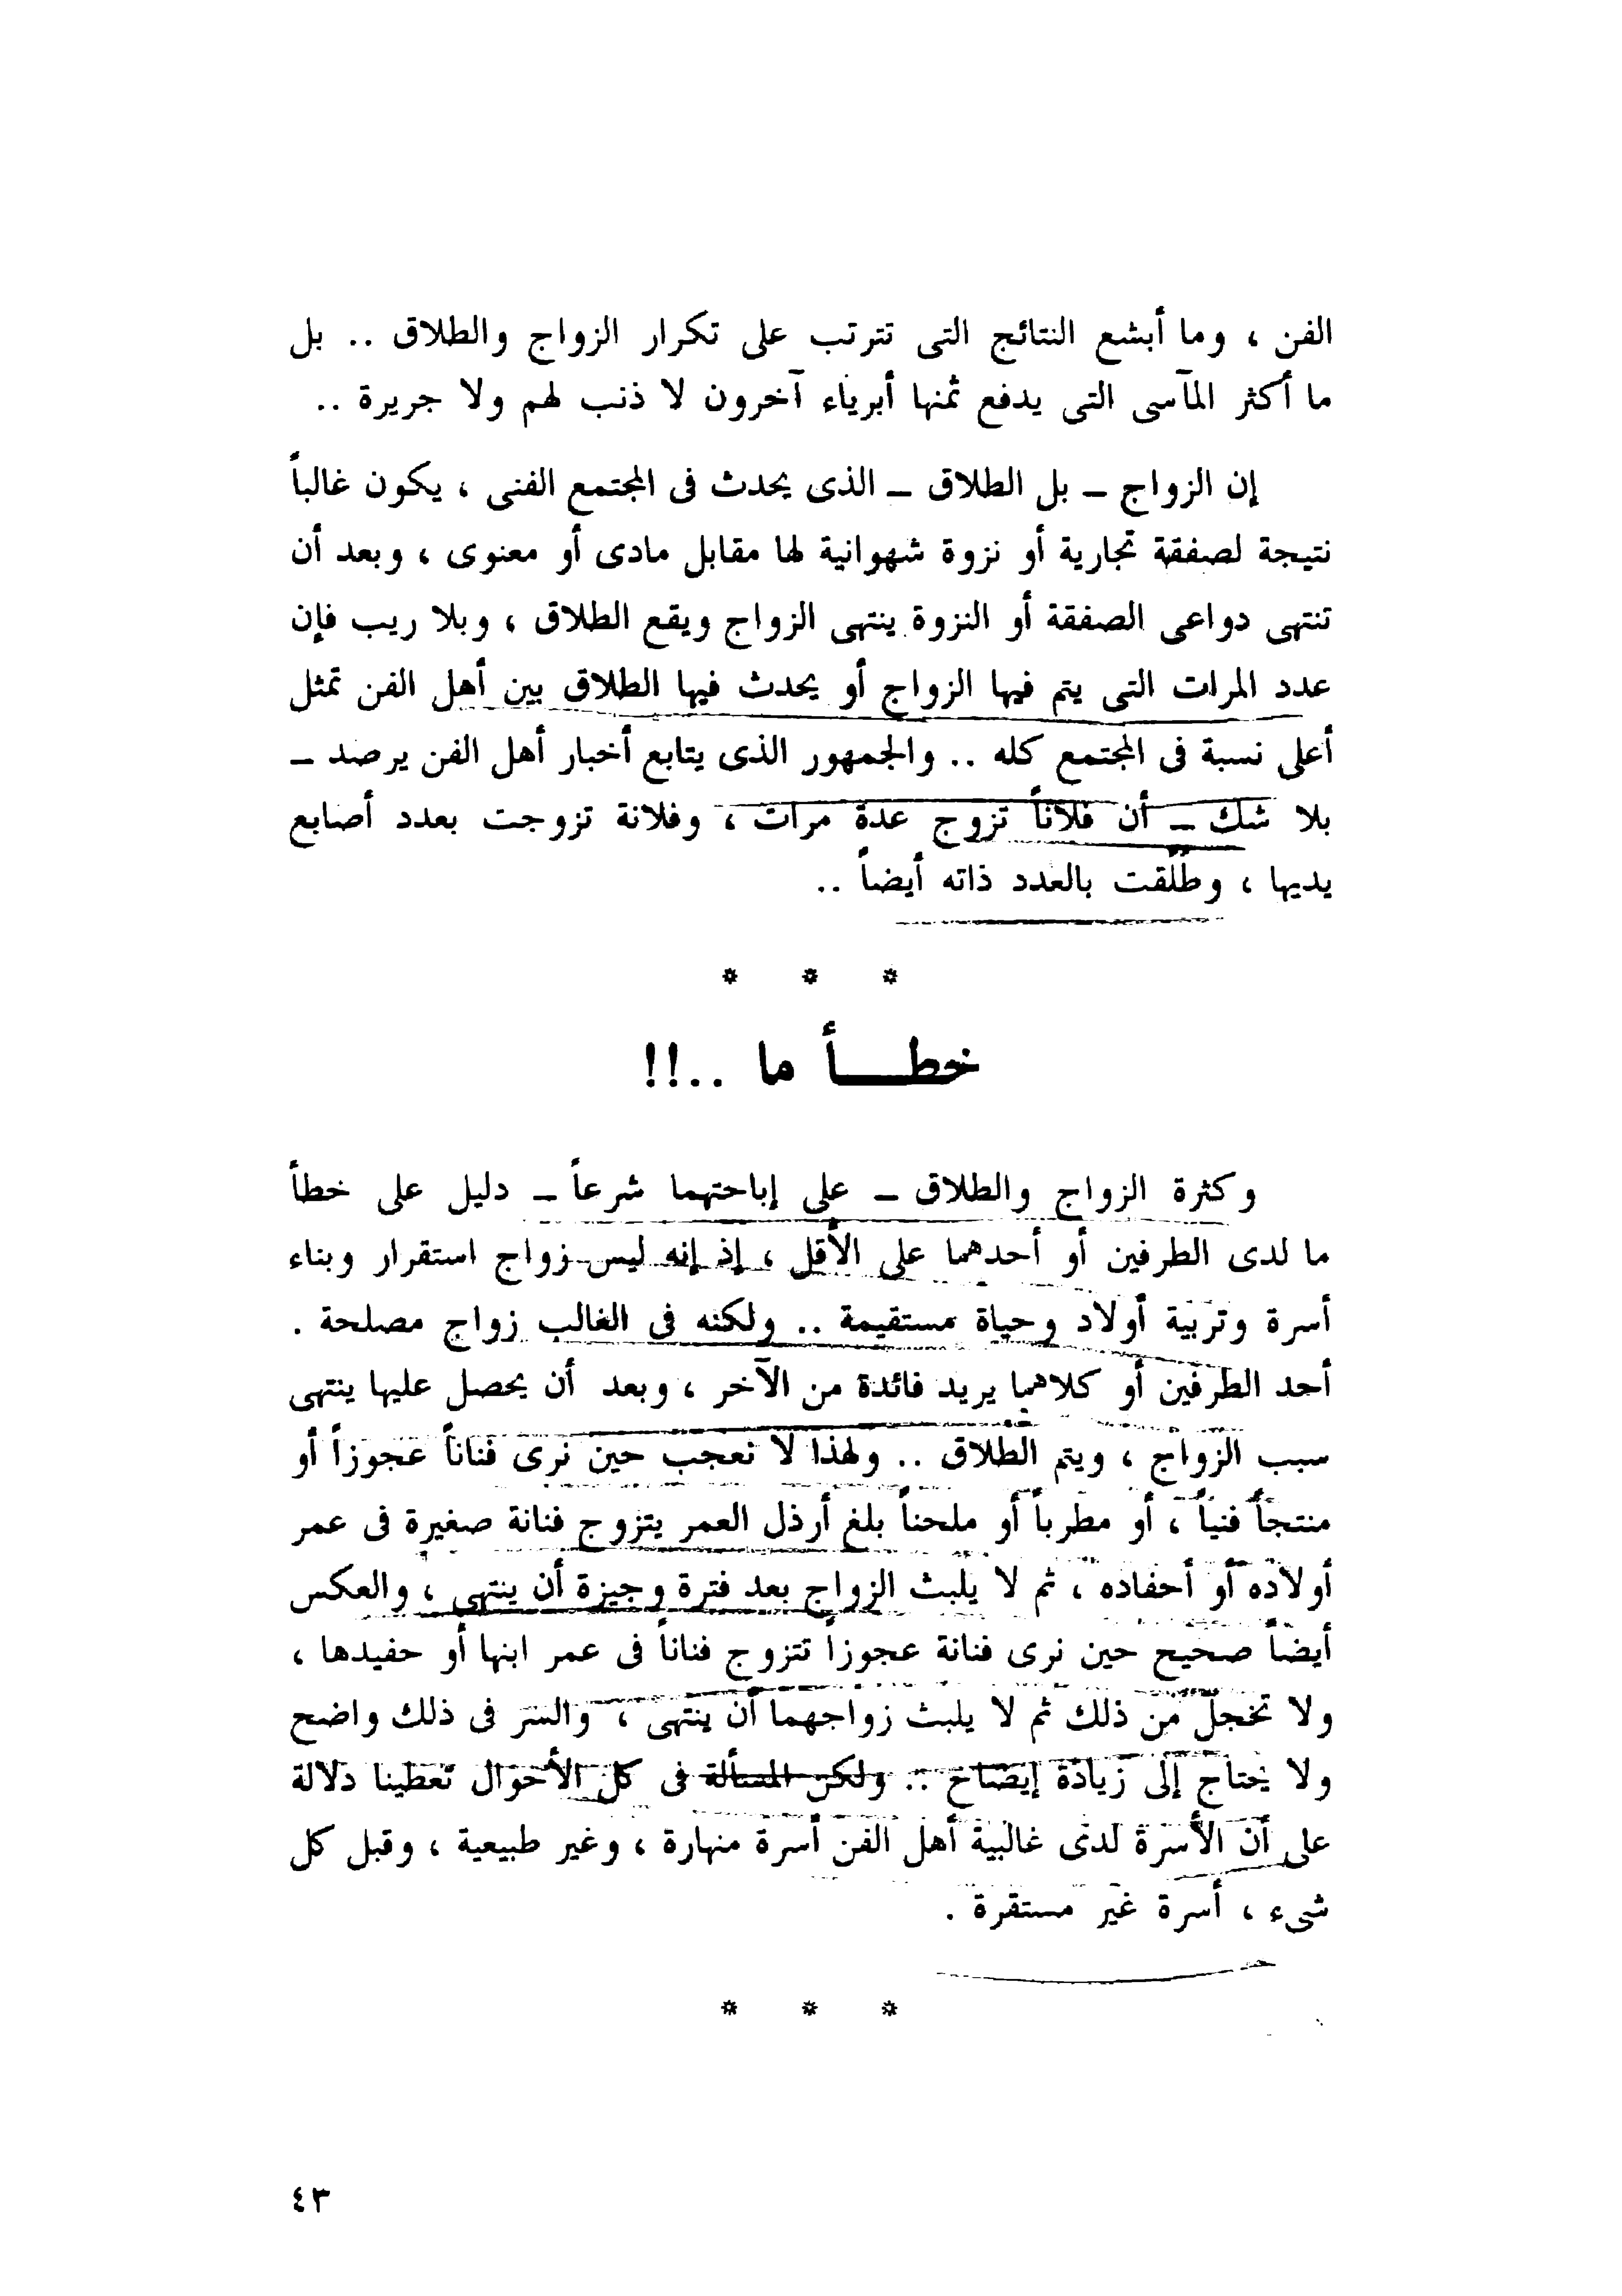 الفن ، وما أبشع النتائج التى تترتب على تكرار الزواج والطلاق .. بل
ما أكثر المآسى التى يدفع ثمنها أبرياء آخرون لا ذنب لهم ولا جريرة ..
إن الزواج – بل الطلاق – الذى يحدث فى المجتمع الفنى ، يكون غالباً
نتيجة لصفقة تجارية أو نزوة شهوانية لها مقابل مادى أو معنوى ، وبعد أن
تنتهى دواعى الصفقة أو النزوة ينتهى الزواج ويقع الطلاق ، وبلا ريب فإن
عدد المرات التى يتم فيها الزواج أو يحدث فيها الطلاق بين أهل الفن تمثل
أعلى نسبة فى المجتمع كله .. والجمهور الذى يتابع أخبار أهل الفن يرصد –
بلا شك – أن فلاناً تزوج عدة مرات ، وفلانة تزوجت بعدد أصابع
يديها ، وطُلِّقت بالعدد ذاته أيضاً ..
* * *
خطـــأ ما ..!!
وكثرة الزواج والطلاق – على إباحتهما شرعاً – دليل على خطأ
ما لدى الطرفين أو أحدهما على الأقل ، إذ إنه ليس زواج استقرار وبناء
أسرة وتربية أولاد وحياة مستقيمة .. ولكنه فى الغالب زواج مصلحة .
أحد الطرفين أو كلاهما يريد فائدة من الآخر ، وبعد أن يحصل عليها ينتهى
سبب الزواج ، ويتم الطلاق .. ولهذا لا نعجب حين نرى فناناً عجوزاً أو
منتجاً فنياً ، أو مطرباً أو ملحناً بلغ أرذل العمر يتزوج فنانة صغيرة فى عمر
أولاده أو أحفاده ، ثم لا يلبث الزواج بعد فترة وجيزة أن ينتهى ، والعكس
أيضاً صحيح حين نرى فنانة عجوزاً تتزوج فناناً فى عمر ابنها أو حفيدها ،
ولا تخجل من ذلك ثم لا يلبث زواجهما أن ينتهى ، والسر فى ذلك واضح
ولا يحتاج إلى زيادة إيضاح .. ولكن المسألة فى كل الأحوال تعطينا دلالة
على أن الأسرة لدى غالبية أهل الفن أسرة منهارة ، وغير طبيعية ، وقبل كل
شىء ، أسرة غير مستقرة .
* * *
٤٣